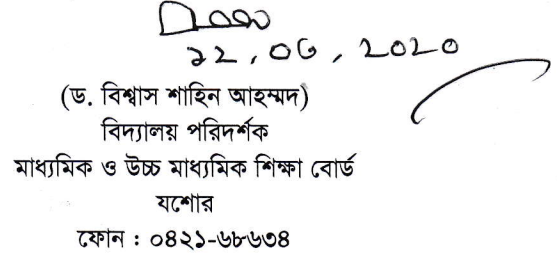 ২২.০৬.২০২০
(ড. বিশ্বাস শাহিন আহম্মদ)
বিদ্যালয় পরিদর্শক
মাধ্যমিক ও উচ্চ মাধ্যমিক শিক্ষা বোর্ড
যশোর
ফোন : ০৪২১-৬৮৬৩৪